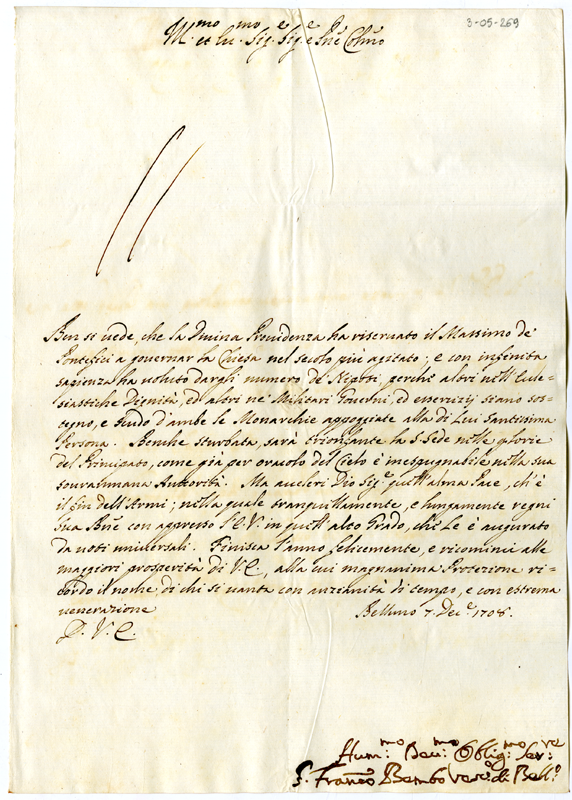 3-05-269
Ill.mo et Re.mo Sig.e Sig.e e Pne Colmo
Ben si vede, che la Divina Providenza ha riservato il Massimo de'
Pontefici a governar la Chiesa nel secolo più agitato; e con infinita
sapienza ha voluto dargli numero de Nipoti, perche altri nell'Eccle=
siastiche Dignità, ed altri ne' Militari Governi, ed essercizij siano sos=
tegno, e scudo d'ambe le Monarchie appoggiate alla di Lui Santissima
Persona. Benche sturbata, sarà trionfante la S. Sede nelle glorie
del Principato, come già per oracolo del Cielo è inespugnabile nella sua
souraumana Autorità. Ma acceleri Dio Sig.e quell'alma Pace, ch'è
il fin dell'Armi; nella quale tranquillamente, e lungamente regni
sua Bne con appresso l'E.V. in quell'alto Grado, che Le è augurato
da voti universali. Finisca l'anno felicemente, e ricominci alle
maggiori prosperità di V.E., alla cui magnanima Protezione ri=
cordo il nome di chi si vanta con anzianità di tempo, e con estrema
venerazione Belluno 7. Dec.e 1708.
D. V. E.
Hum.mo Dev.mo Oblig.mo Ser.ve
G. Franco Bembo Vesc.o di Bell.o